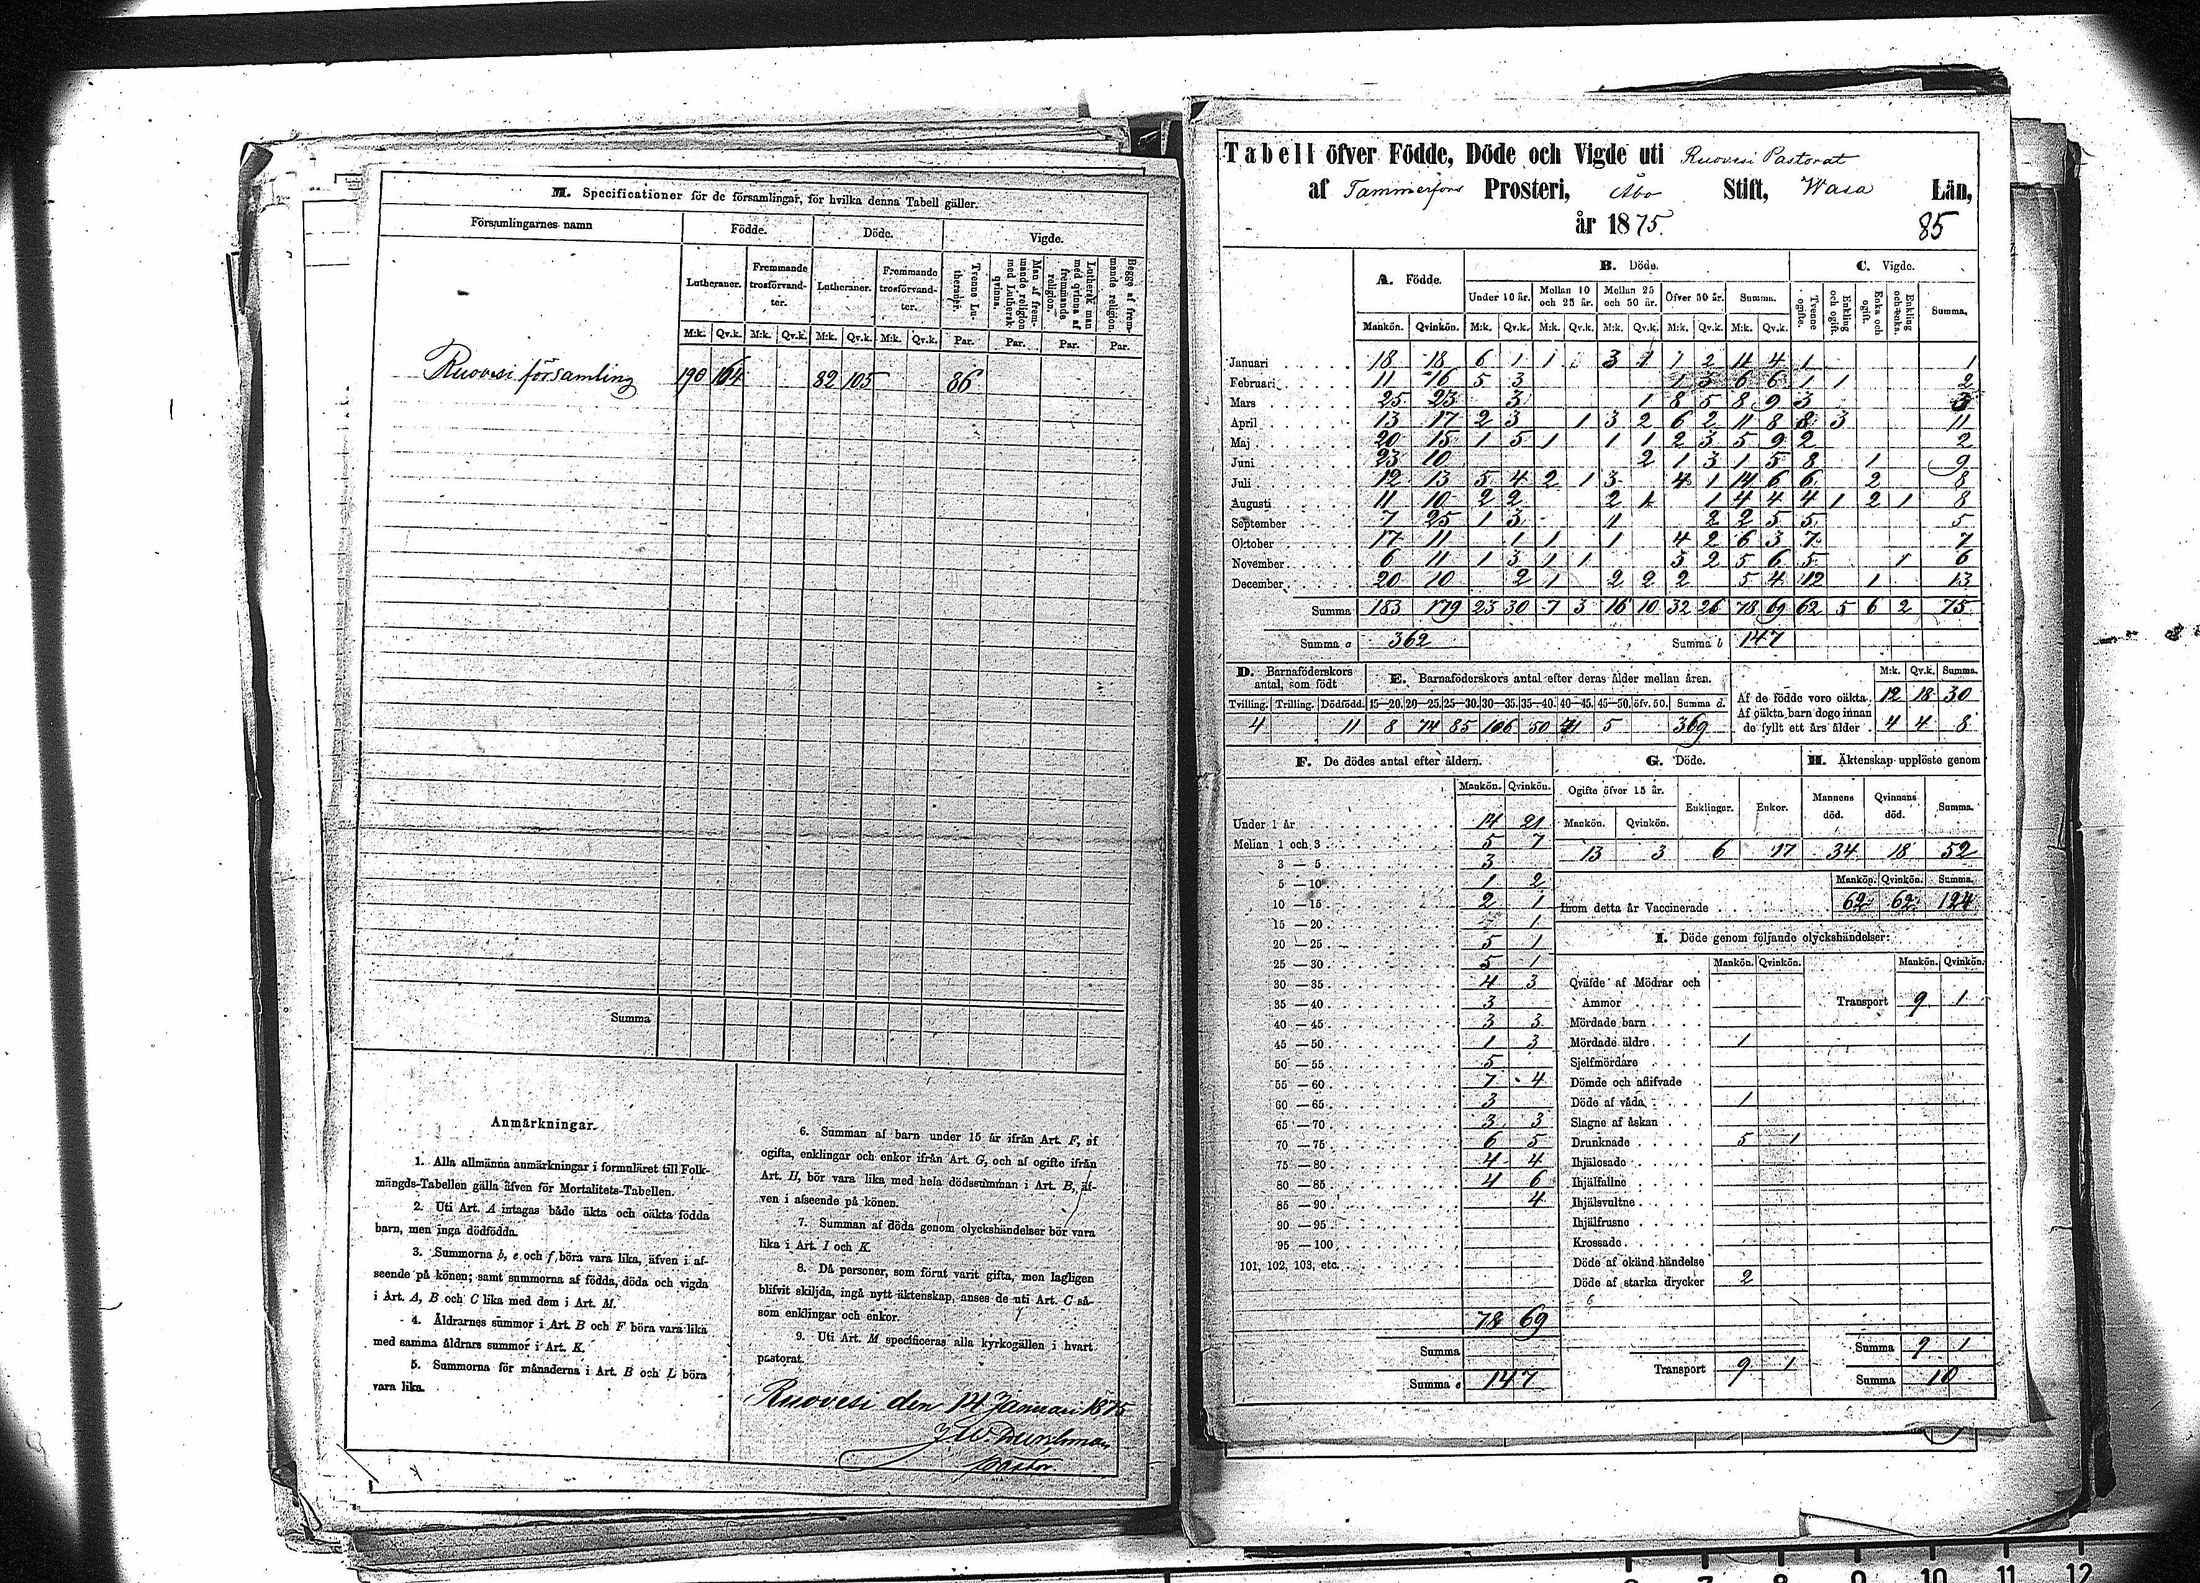 M. Specificationer för de församlingar, för hvilka denna Tabell gäller.
Församlingarnes namn
Födde.
Döde.
Vigde.
Lutheraner.
Fremmande trosförvand-ter.
Lutheraner.
Fremmande trosförvand-ter.
Tvenne Lu-theraner.
Man af frem-mande religion med Luthersk qvinna.
Luthersk man med qvinna af fremmande religion.
Begge af frem-mande religion.
M:k. Qv.k. M:k. Qv.k. M:k. Qv.k. M:k. Qv.k. Par. Par. Par. Par.
Ruovesi församling 190 164 82 105 86
Summa
Anmärkningar.
1. Alla allmänna anmärkningar i formuläret till Folk-
mängds-Tabellen gälla äfven för Mortalitets-Tabellen.
2. Uti Art. A intagas både äkta och oäkta födda
barn, men inga dödfödda.
3. Summorna b, e och f böra vara lika, äfven i af-
seende på könen; samt summorna af födda, döda och vigda
i Art. A, B och C lika med dem i Art. M.
4. Åldrarnes summor i Art. B och F böra vara lika
med samma åldrars summor i Art. K.
5. Summorna för månaderna i Art. B och L böra
vara lika.
6. Summan af barn under 15 år ifrån Art. F, af
ogifta, enklingar och enkor ifrån Art. G, och af ogifte ifrån
Art. H, bör vara lika med hela dödssumman i Art. B, äf-
ven i afseende på könen.
7. Summan af döda genom olyckshändelser bör vara
lika i Art. I och K.
8. Då personer, som förut varit gifta, men lagligen
blifvit skiljda, ingå nytt äktenskap, anses de uti Art. C så-
som enklingar och enkor.
9. Uti Art. M specificeras alla kyrkogällen i hvart
pastorat.
Ruovesi den 14 Januari 1875
Pastor.
Tabell öfver Födde, Döde och Vigde uti Ruovesi Pastorat
af Tammerfors Prosteri, Åbo Stift, Wasa Län,
år 1875.
85
A. Födde.
B. Döde.
C. Vigde.
Under 10 år. Mellan 10 och 25 år. Mellan 25 och 50 år. Öfver 50 år. Summa.
Tvenne ogifte. Enkling och ogift. Enka och ogift. Enkling och enka. Summa.
Mankön. Qvinkön. M:k. Qv.k. M:k. Qv.k. M:k. Qv.k. M:k. Qv.k. M:k. Qv.k.
Januari 18 18 6 1 1 3 1 1 2 11 4 1 1
Februari 11 16 5 3 1 3 6 6 1 1 2
Mars 25 23 3 1 8 5 8 9 3 3
April 13 17 2 3 1 3 2 6 2 11 8 8 3 11
Maj 20 15 1 5 1 1 1 2 3 5 9 2 2
Juni 23 10 2 1 3 1 5 8 1 9
Juli 12 13 5 4 2 1 3 4 1 14 6 6 2 8
Augusti 11 10 2 2 2 1 1 4 4 4 1 2 1 8
September 7 25 1 3 1 2 2 5 5 5
Oktober 17 11 1 1 1 4 2 6 3 7 7
November 6 11 1 3 1 1 3 2 5 6 5 1 6
December 20 10 2 1 2 2 2 5 4 12 1 13
Summa 183 179 23 30 7 3 16 10 32 26 78 69 62 5 6 2 75
Summa a 362 Summa b 147
D. Barnaföderskors antal, som födt
E. Barnaföderskors antal efter deras ålder mellan åren.
M:k. Qv.k. Summa.
Tvilling. Trilling. Dödfödd. 15—20. 20—25. 25—30. 30—35. 35—40. 40—45. 45—50. öfv. 50. Summa d.
4 11 8 74 85 106 50 41 5 369
Af de födde voro oäkta 12 18 30
Af oäkta barn dogo innan de fyllt ett års ålder 4 4 8
F. De dödes antal efter åldern.
Mankön. Qvinkön.
Under 1 år 14 21
Mellan 1 och 3 5 7
3 — 5 3
5 — 10 1 2
10 — 15 2 1
15 — 20 1
20 — 25 5 1
25 — 30 5 1
30 — 35 4 3
35 — 40 3
40 — 45 3 3
45 — 50 1 3
50 — 55 5
55 — 60 7 4
60 — 65 3
65 — 70 3 3
70 — 75 6 5
75 — 80 4 4
80 — 85 4 6
85 — 90 4
90 — 95
95 — 100
101, 102, 103, etc.
78 69
Summa
Summa e 147
G. Döde.
Ogifte öfver 15 år. Enklingar. Enkor.
Mankön. Qvinkön.
13 3 6 17
H. Äktenskap upplöste genom
Mannens död. Qvinnans död. Summa.
34 18 52
Mankön. Qvinkön. Summa.
Inom detta år Vaccinerade 62 62 124
I. Döde genom följande olyckshändelser:
Mankön. Qvinkön. Mankön. Qvinkön.
Qväfde af Mödrar och
Ammor Transport 9 1
Mördade barn
Mördade äldre 1
Sjelfmördare
Dömde och aflifvade
Döde af våda 1
Slagne af åskan
Drunknade 5 1
Ihjälosade
Ihjälfallne
Ihjälsvultne
Ihjälfrusne
Krossade
Döde af okänd händelse
Döde af starka drycker 2
Summa 9 1
Transport 9 1
Summa 10
6 7 8 9 10 11 12